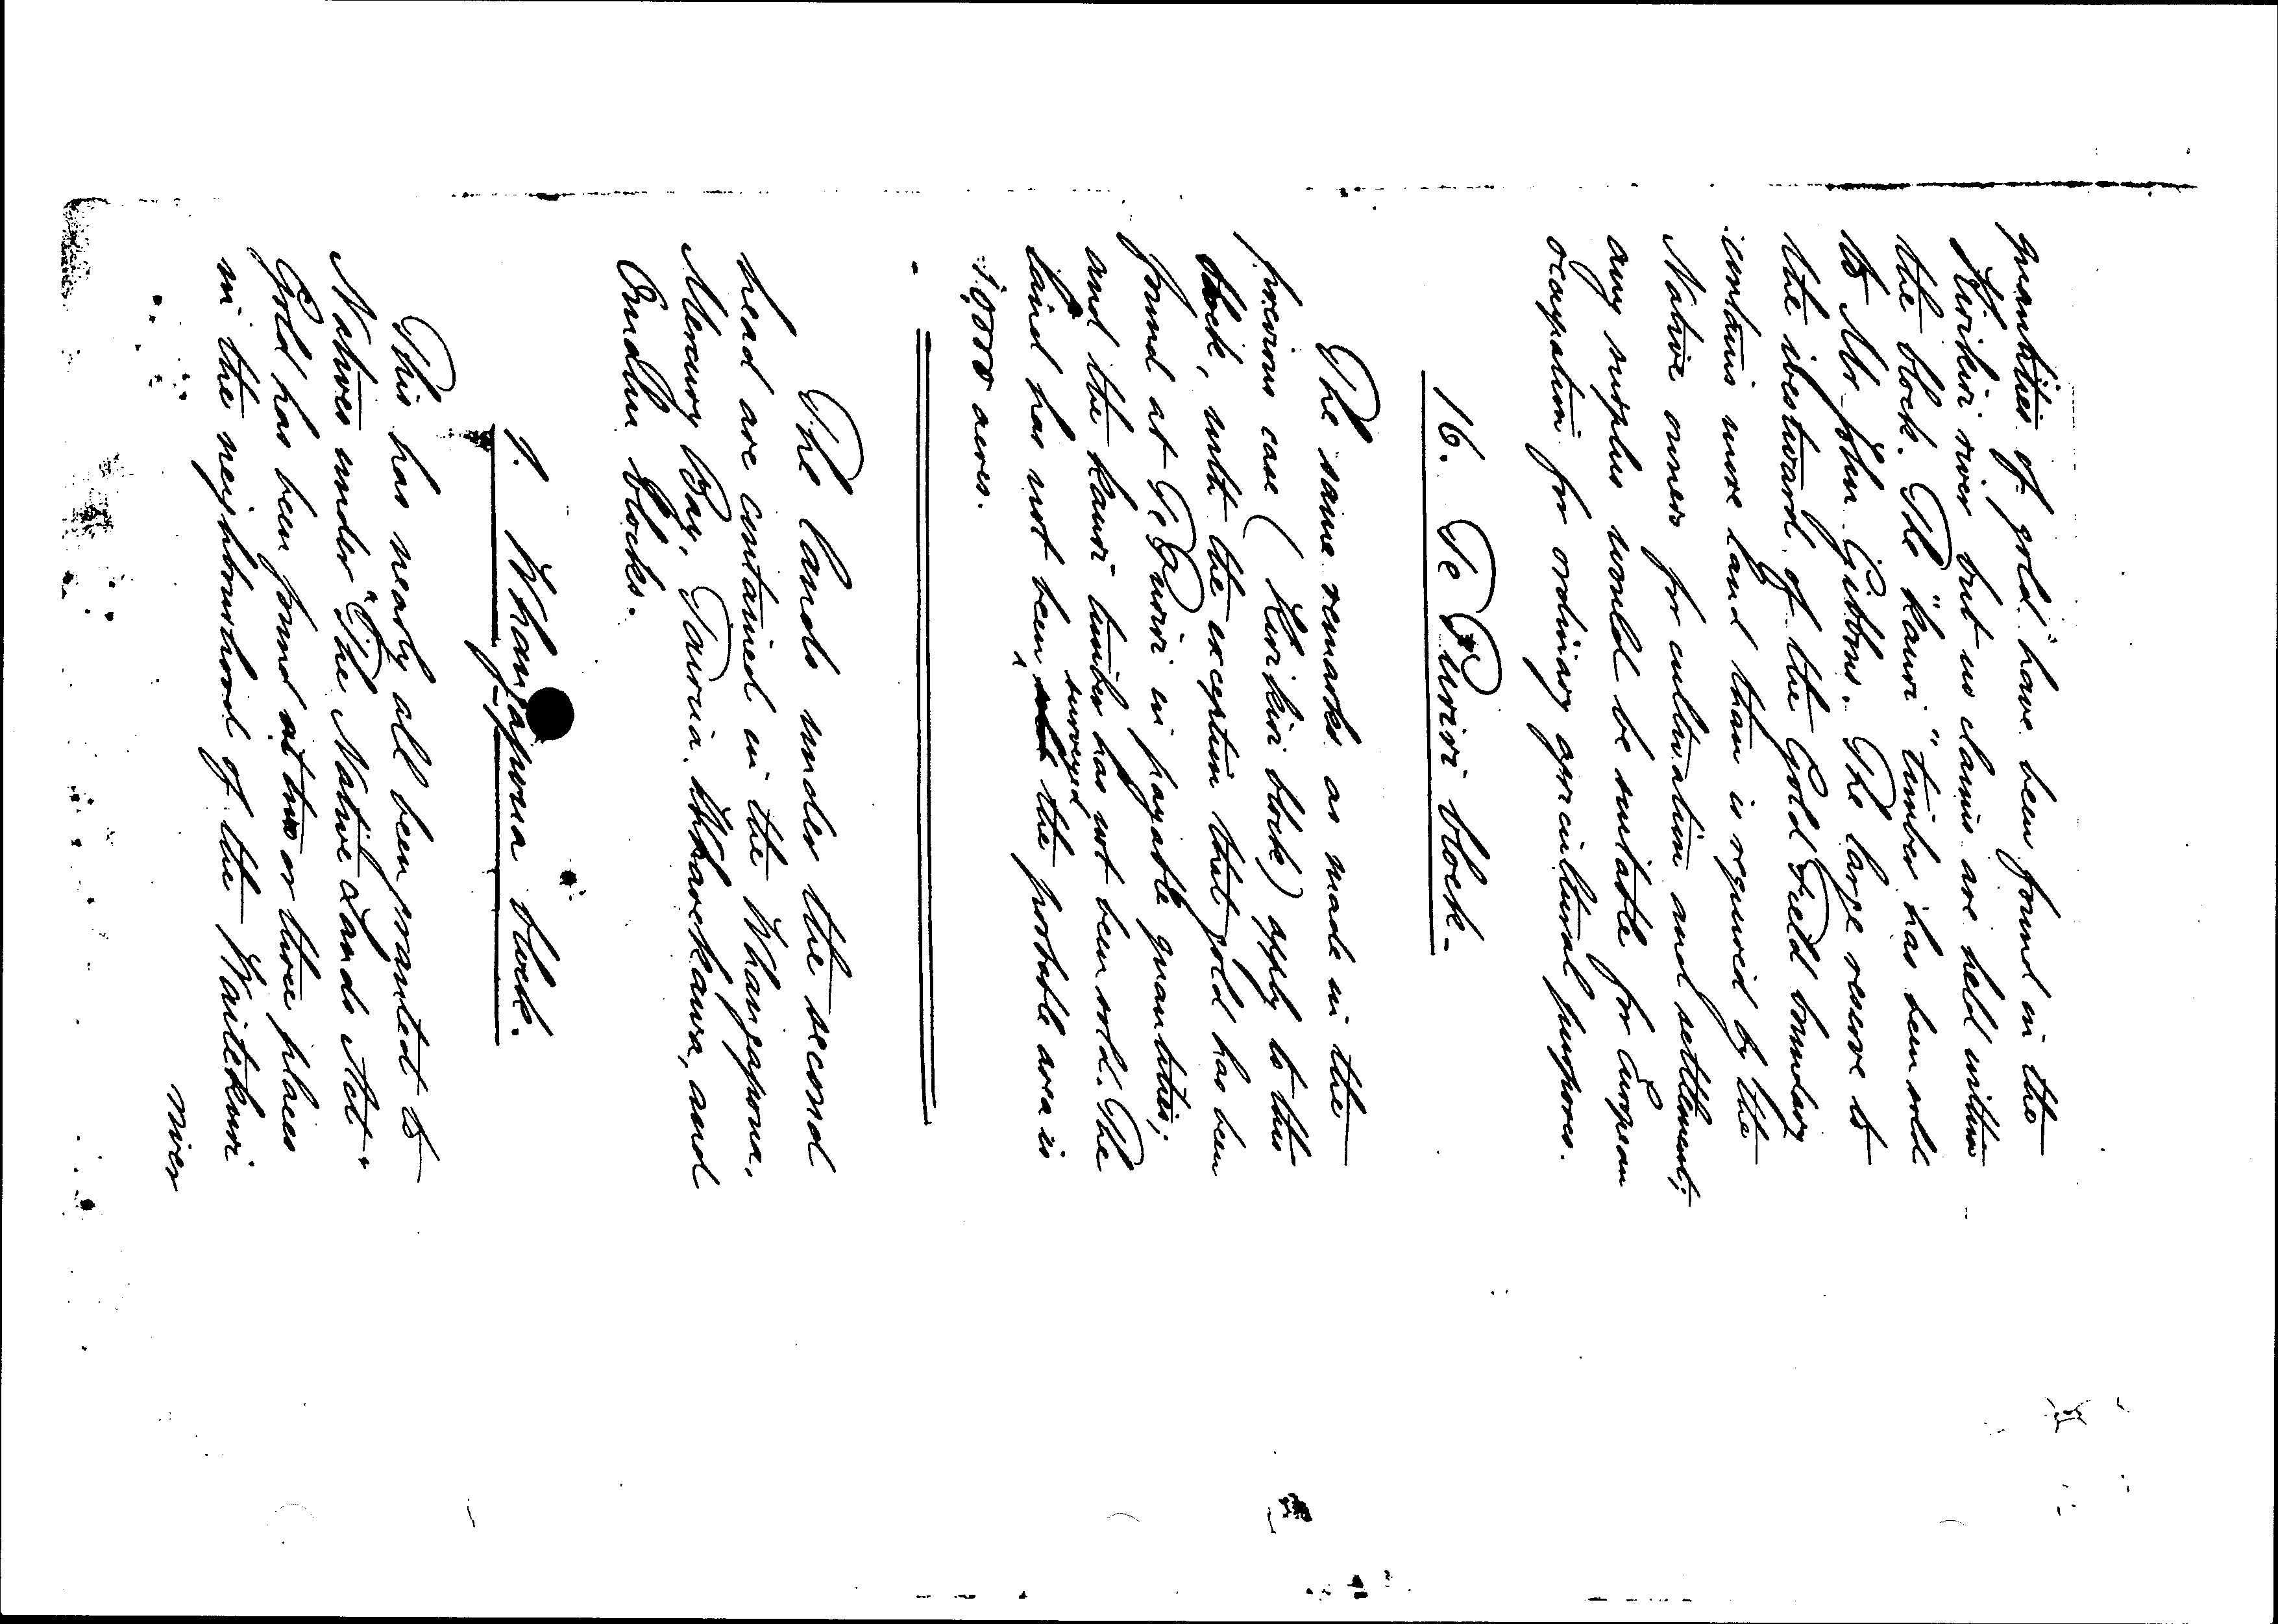 quantities of gold have been found in the
Kirikiri river but no claims are held within
the block. The "kauri" timber has been sold
to Mr John Gibbons. The large reserve to
the westward of the Gold Field boundary
contains more land than is required by the
Native owners for cultivation and settlement;
any surplus would be suitable for European
occupation for ordinary agricultural purposes.
16. Te Puriri block.
The same remarks as made in the
previous case (Kirikiri block) apply to this
block, with the exception that gold has been
found at Te Puriri in payable quantities;
and the kauri timber has not been sold. The
land has not been surveyed the probable area is
acres.
The lands under the second
head are contained in the Whangapoua,
Mercury Bay, Tairua, Wharekawa, and
Omahu blocks.
1. Whangapoua block.
This has nearly all been granted to
Natives under "The Native Lands Act"
Gold has been found at two or three places
in the neighbourhood of the Waitekuri
river